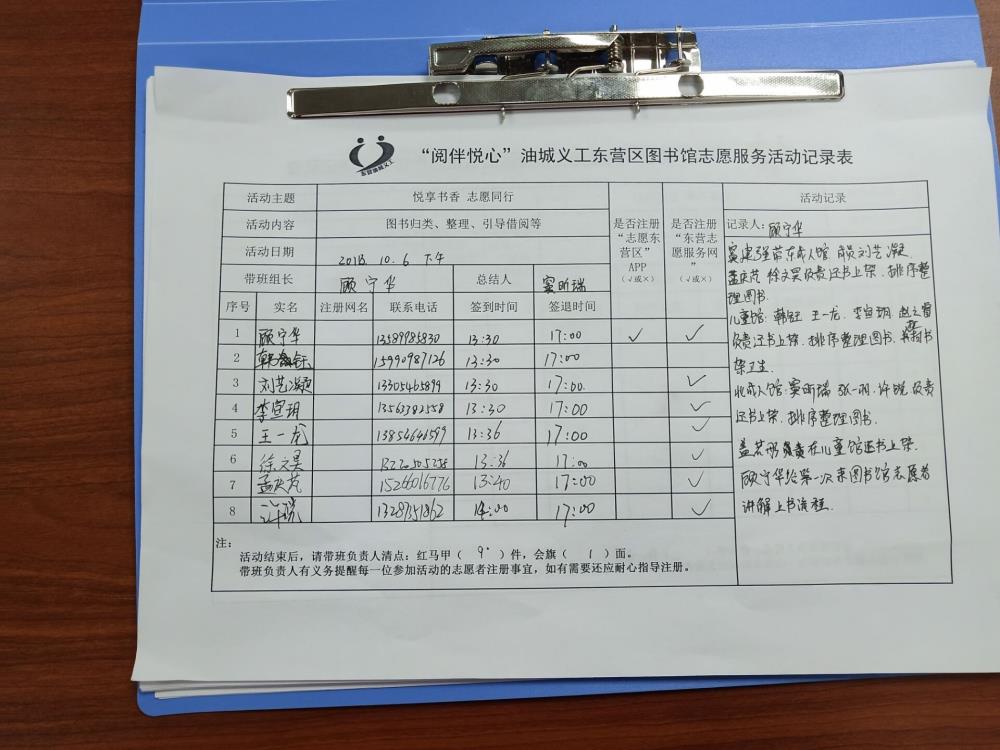 东营油城义工
“阅伴悦心”油城义工东营区图书馆志愿服务活动记录表
活动主题 悦享书香 志愿同行
活动内容 图书归类、整理、引导借阅等
活动日期 2018.10.6 下午
带班组长 顾宁华 总结人 窦昕瑞
是否注册“志愿东营区”APP（√或×）
是否注册“东营志愿服务网”（√或×）
序号 实名 注册网名 联系电话 签到时间 签退时间
1 顾宁华 13589985830 13:30 17:00 ✓ ✓
2 15990987126 13:30 17:00
3 刘艺凝 13305465899 13:30 17:00 ✓
4 李宣玥 13563382558 13:30 17:00 ✓
5 王一龙 13854641599 13:36 17:00 ✓
6 徐文昊 13:36 17:00 ✓
7 孟庆芃 15266016776 13:40 17:00 ✓
8 许锐 13287351862 14:00 17:00 ✓
注：
活动结束后，请带班负责人清点：红马甲（ 9 ）件，会旗（ 1 ）面。
带班负责人有义务提醒每一位参加活动的志愿者注册事宜，如有需要还应耐心指导注册。
活动记录
记录人：顾宁华
窦建强 成人馆 刘艺凝
孟庆芃 徐文昊负责还书上架．排序整
理图书．
儿童馆：韩钰 王一龙．李宣玥．
负责还书上架．排序整理图书．
架卫生．
成人馆：窦昕瑞 张一 许锐 负责
还书上架．排序整理图书．
负责在儿童馆还书上架．
顾宁华给第一次来图书馆志愿者
讲解上书流程．